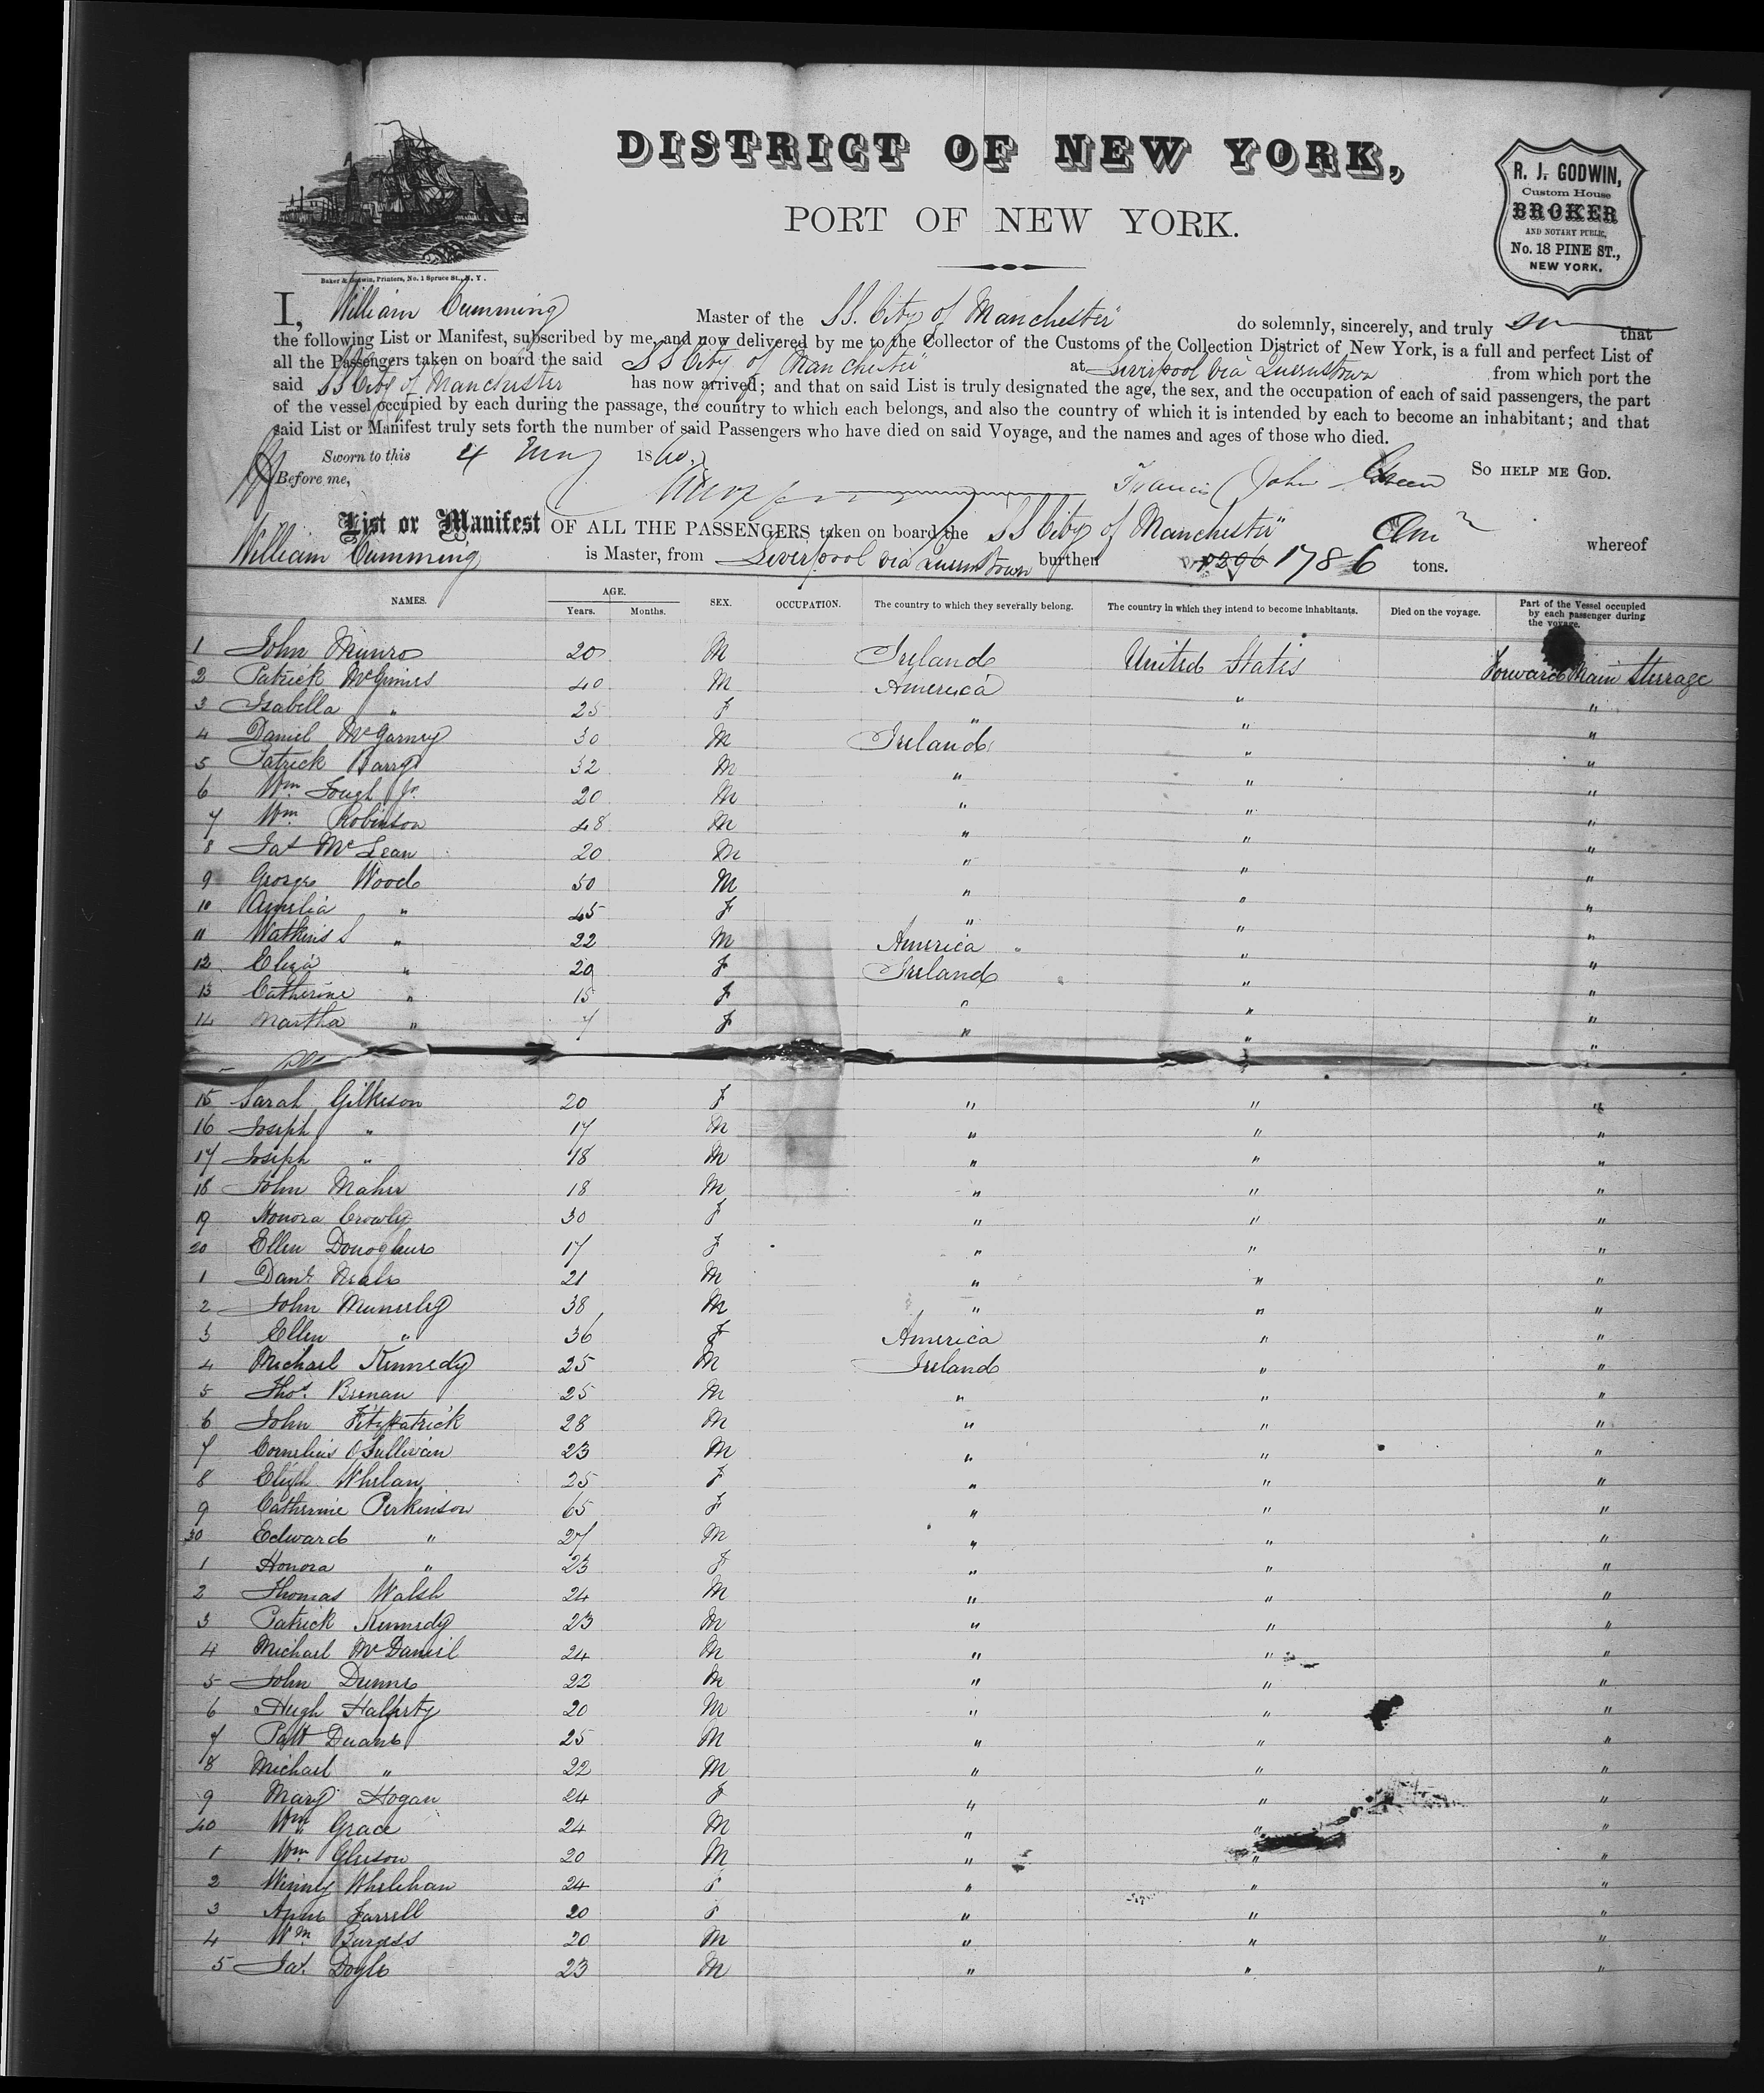 DISTRICT OF NEW YORK,
PORT OF NEW YORK.
R. J. GODWIN,
Custom House
BROKER
AND NOTARY PUBLIC,
No. 18 PINE ST.,
NEW YORK.
Baker & Godwin, Printers, No. 1 Spruce St., N. Y.
I, William Cumming Master of the SS. City of Manchester" do solemnly, sincerely, and truly that
the following List or Manifest, subscribed by me, and now delivered by me to the Collector of the Customs of the Collection District of New York, is a full and perfect List of
all the Passengers taken on board the said SS City of Manchester" at Liverpool via Queenstown from which port the
said SS City of Manchester has now arrived; and that on said List is truly designated the age, the sex, and the occupation of each of said passengers, the part
of the vessel occupied by each during the passage, the country to which each belongs, and also the country of which it is intended by each to become an inhabitant; and that
said List or Manifest truly sets forth the number of said Passengers who have died on said Voyage, and the names and ages of those who died.
Sworn to this 4 May 1860 SO HELP ME GOD.
Before me, Francis John Green
List or Manifest OF ALL THE PASSENGERS taken on board the SS City of Manchester" whereof
William Cumming is Master, from Liverpool via Queenstown burthen 1786 tons.
NAMES. AGE. SEX. OCCUPATION. The country to which they severally belong. The country in which they intend to become inhabitants. Died on the voyage. Part of the Vessel occupied by each passenger during the voyage.
Years. Months.
1 John Munro 20 M Ireland United States Forward Main Steerage
2 Patrick McGinnis 40 M America " "
3 Isabella " 25 F " " "
4 Daniel McGarney 30 M Ireland " "
5 Patrick Barry 32 M " " "
6 Wm Gough Jr. 20 M " " "
7 Wm Robinson 48 M " " "
8 Jas McLean 20 M " " "
9 George Wood 50 M " " "
10 Amelia " 45 F " " "
11 Watkins S " 22 M America " "
12 Eliza " 20 F Ireland " "
13 Catherine " 15 F " " "
14 Martha " 7 F " " "
15 Sarah Gilkeson 20 F " " "
16 Joseph " 17 M " " "
17 Joseph " 18 M " " "
18 John Maher 18 M " " "
19 Honora Crowly 30 F " " "
20 Ellen Donoghue 17 F " " "
1 Danl Neale 21 M " " "
2 John Munerly 38 M " " "
3 Ellen " 36 F America " "
4 Michael Kennedy 25 M Ireland " "
5 Thos. Brenan 25 M " " "
6 John Fitzpatrick 28 M " " "
7 Cornelius OSullivan 23 M " " "
8 Elizth Whelan 25 F " " "
9 Catherine Perkinson 65 F " " "
30 Edward " 27 M " " "
1 Honora " 23 F " " "
2 Thomas Walsh 24 M " " "
3 Patrick Kennedy 23 M " " "
4 Michael McDaniel 24 M " " "
5 John Dunne 22 M " " "
6 Hugh Halferty 20 M " " "
7 Patt Duane 25 M " " "
8 Michael " 22 M " " "
9 Mary Hogan 24 F " " "
40 Wm Grace 24 M " " "
1 Wm Gleeson 20 M " " "
2 Winny Whelehan 24 F " " "
3 Anne Farrell 20 F " " "
4 Wm Burgess 20 M " " "
5 Jas. Doyle 23 M " " "